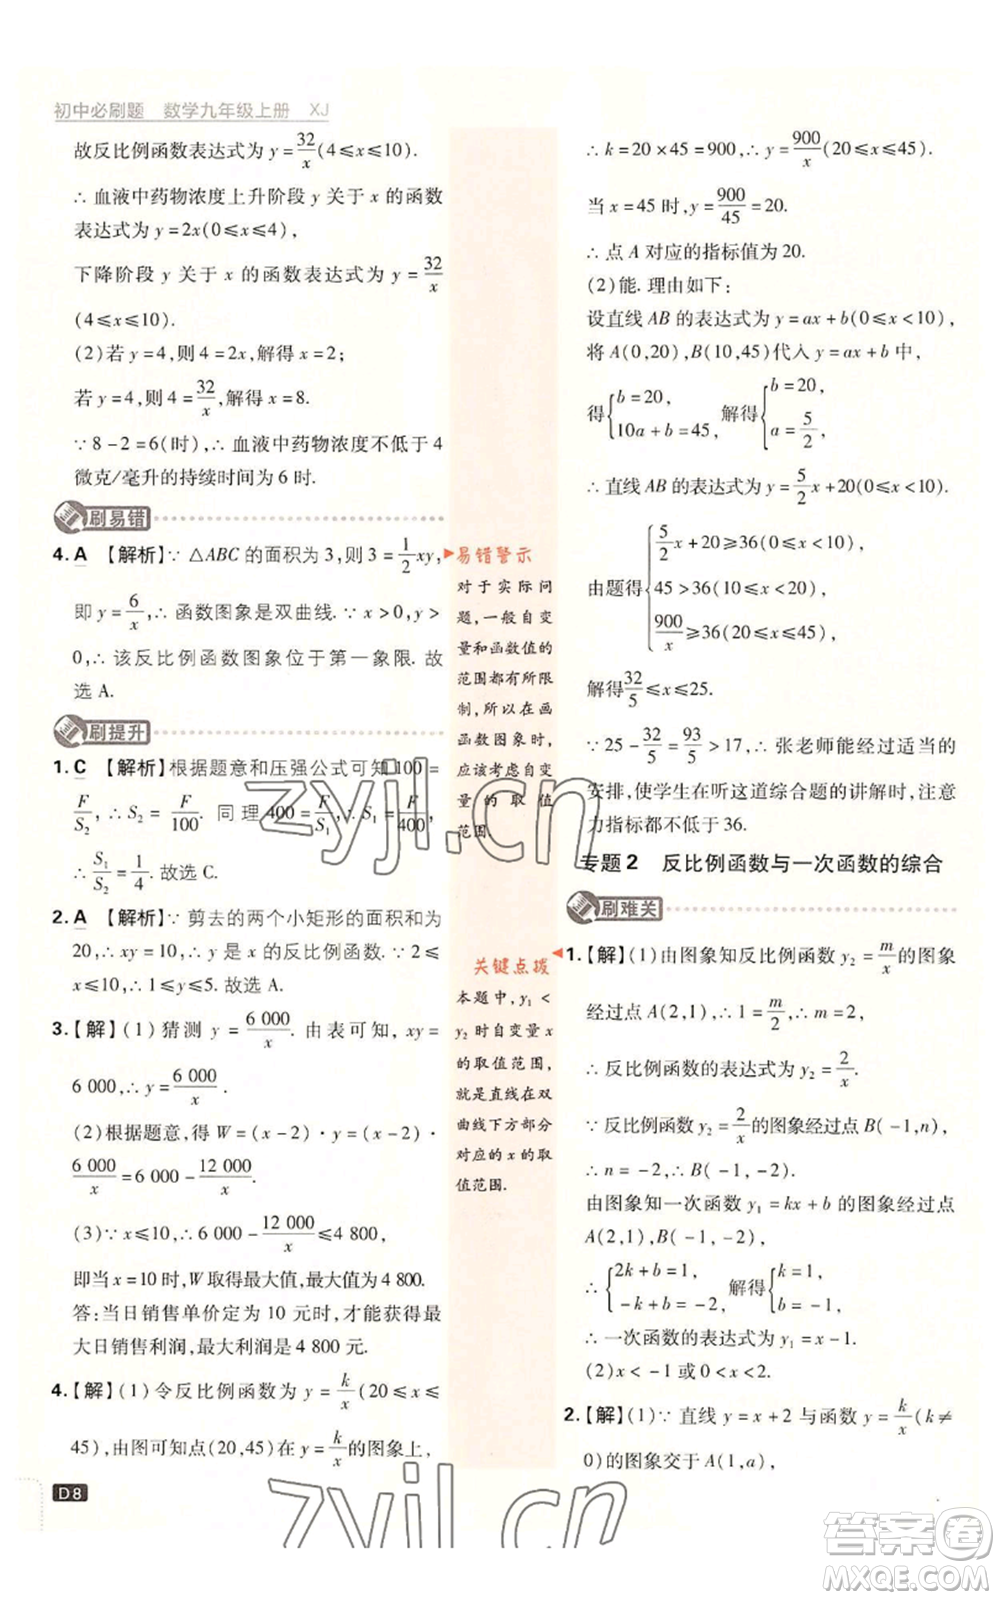 初中必刷题 数学九年级上册 XJ
故反比例函数表达式为 y=32/x(4≤x≤10).
∴ 血液中药物浓度上升阶段 y 关于 x 的函数
表达式为 y=2x(0≤x≤4),
下降阶段 y 关于 x 的函数表达式为 y=32/x
(4≤x≤10).
(2)若 y=4,则 4=2x,解得 x=2;
若 y=4,则 4=32/x,解得 x=8.
∵ 8-2=6(时),∴ 血液中药物浓度不低于 4
微克/毫升的持续时间为 6 时.
刷易错
4. A 【解析】∵ △ABC 的面积为 3,则 3=1/2xy,
即 y=6/x,∴ 函数图象是双曲线.∵ x>0,y>
0,∴ 该反比例函数图象位于第一象限. 故
选 A.
刷提升
1. C 【解析】根据题意和压强公式可知 100=
F/S₂,∴ S₂=F/100. 同理 400=F/S₁,∴ S₁=F/400,
∴ S₁/S₂=1/4. 故选 C.
2. A 【解析】∵ 剪去的两个小矩形的面积和为
20,∴ xy=10,∴ y 是 x 的反比例函数.∵ 2≤
x≤10,∴ 1≤y≤5. 故选 A.
3.【解】(1)猜测 y=6 000/x. 由表可知, xy=
6 000,∴ y=6 000/x.
(2)根据题意,得 W=(x-2)·y=(x-2)·
6 000/x=6 000-12 000/x.
(3)∵ x≤10,∴ 6 000-12 000/x≤4 800,
即当 x=10 时,W 取得最大值,最大值为 4 800.
答:当日销售单价定为 10 元时,才能获得最
大日销售利润,最大利润是 4 800 元.
4.【解】(1)令反比例函数为 y=k/x(20≤x≤
45),由图可知点(20,45)在 y=k/x的图象上,
D8
易错警示
对于实际问
题,一般自变
量和函数值的
范围都有所限
制,所以在画
函数图象时,
应该考虑自变
量的取值
范围.
关键点拨
本题中,y₁<
y₂时自变量 x
的取值范围,
就是直线在双
曲线下方部分
对应的 x 的取
值范围.
∴ k=20×45=900,∴ y=900/x(20≤x≤45).
当 x=45 时,y=900/45=20.
∴ 点 A 对应的指标值为 20.
(2)能. 理由如下:
设直线 AB 的表达式为 y=ax+b(0≤x<10),
将 A(0,20),B(10,45)代入 y=ax+b 中,
得{b=20, 10a+b=45, 解得{b=20, a=5/2,
∴ 直线 AB 的表达式为 y=5/2x+20(0≤x<10).
由题得{5/2x+20≥36(0≤x<10),
45>36(10≤x<20),
900/x≥36(20≤x≤45),
解得32/5≤x≤25.
∵ 25-32/5=93/5>17,∴ 张老师能经过适当的
安排,使学生在听这道综合题的讲解时,注意
力指标都不低于 36.
专题2 反比例函数与一次函数的综合
刷难关
1.【解】(1)由图象知反比例函数 y₂=m/x的图象
经过点 A(2,1),∴ 1=m/2,∴ m=2,
∴ 反比例函数的表达式为 y₂=2/x.
∵ 反比例函数 y₂=2/x的图象经过点 B(-1,n),
∴ n=-2,∴ B(-1,-2).
由图象知一次函数 y₁=kx+b 的图象经过点
A(2,1),B(-1,-2),
∴ {2k+b=1, -k+b=-2, 解得{k=1, b=-1,
∴ 一次函数的表达式为 y₁=x-1.
(2)x<-1 或 0<x<2.
2.【解】(1)∵ 直线 y=x+2 与函数 y=k/x(k≠
0)的图象交于点 A(1,a),
zyjl.cn
zyjl.cn
答案圈
MXQE.COM